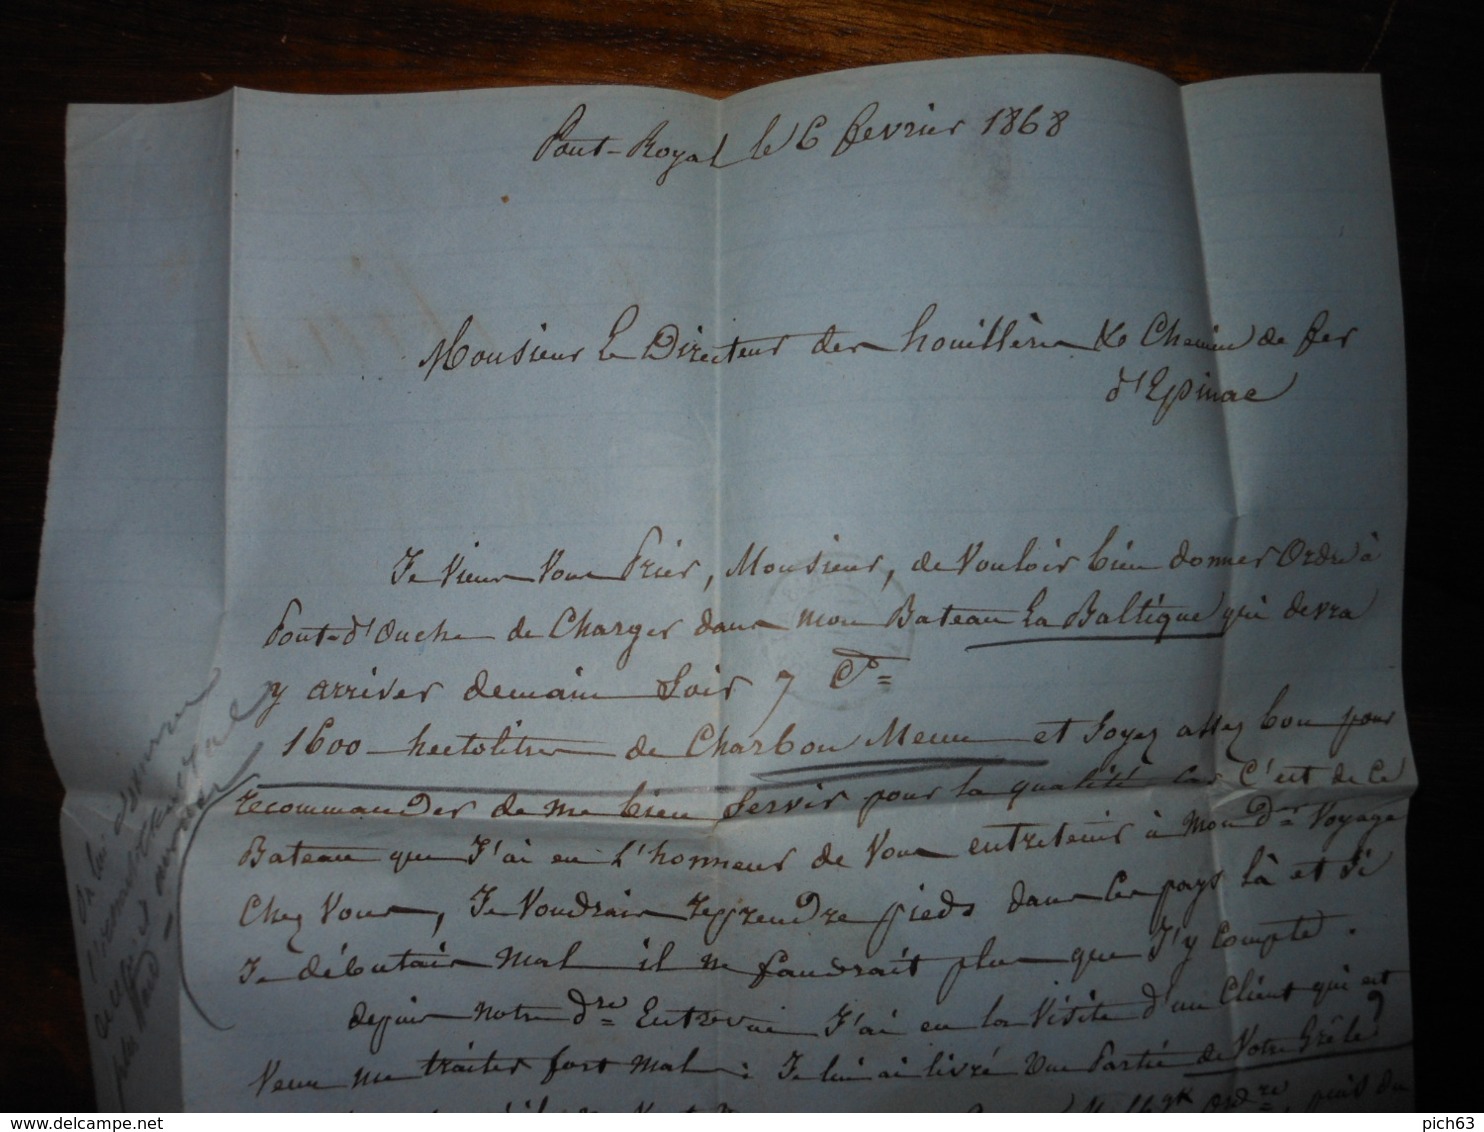 Pont-Royal le 6 fevrier 1868
Monsieur Le Directeur des houillères & Chemin de fer
d'Epinac
Je viens vous Prier, Monsieur, de vouloir bien donner Ordre à
Pont-d'Ouche de Charger dans mon Bateau La Baltique qui devra
y arriver demain Soir 7 Ct
1600 hectolitres de Charbon Menu et Soyez assez bon pour
recommander de me bien Servir pour la qualité car C'est de ce
Bateau que J'ai eu L'honneur de Vous entretenir à mon Der Voyage
Chez Vous, Je Voudrais reprendre pieds dans ces pays là et Si
Je débutais mal il ne faudrait plus que J'y Compte.
depuis notre dre Entrevue J'ai eu la Visite d'un Client qui est
Venu me traiter fort mal: Je lui ai livré une Partie de Votre Grêle
puis du
pich63